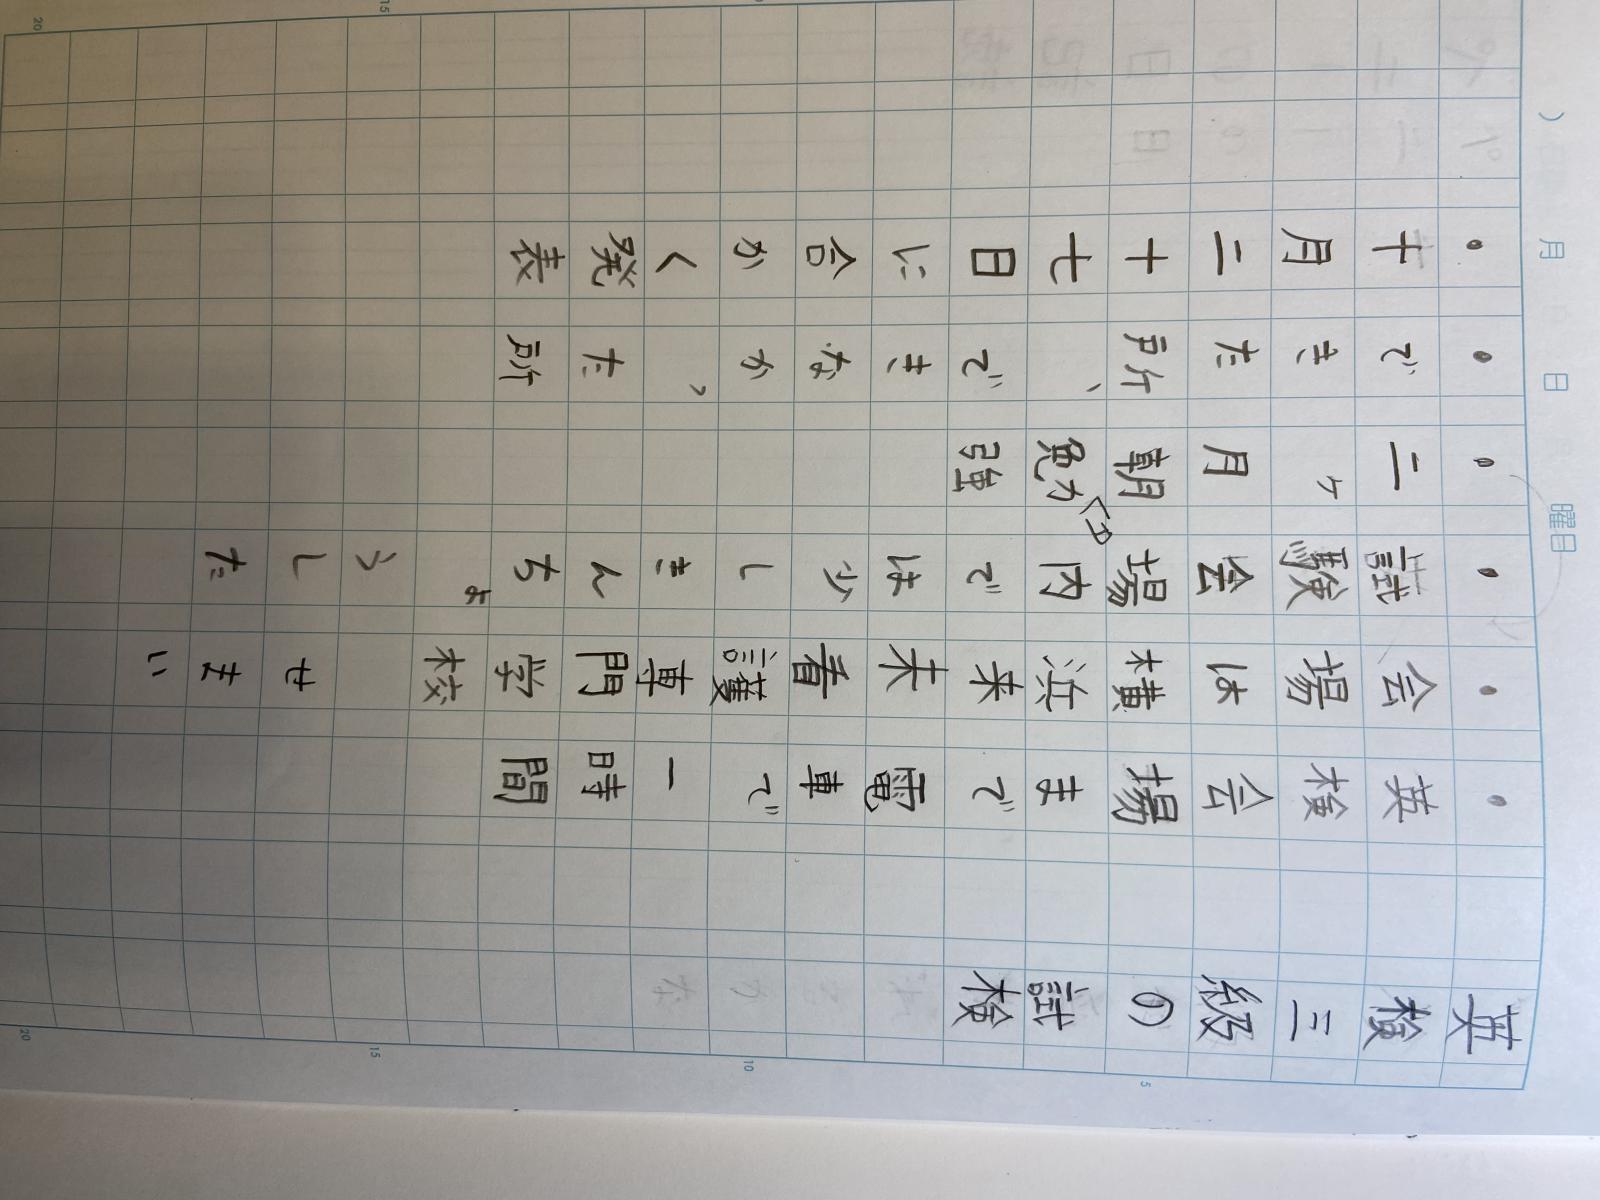 英検三級の試検
・英検会場まで電車で一時間
・会場は横浜来未看護専門学校 せまい
・試験会場内では少しきんちょうした
・二ヶ月朝勉強
・できた所、できなかった所
・十月二十七日に合かく発表
月 日 曜日
5
10
15
20
15
20